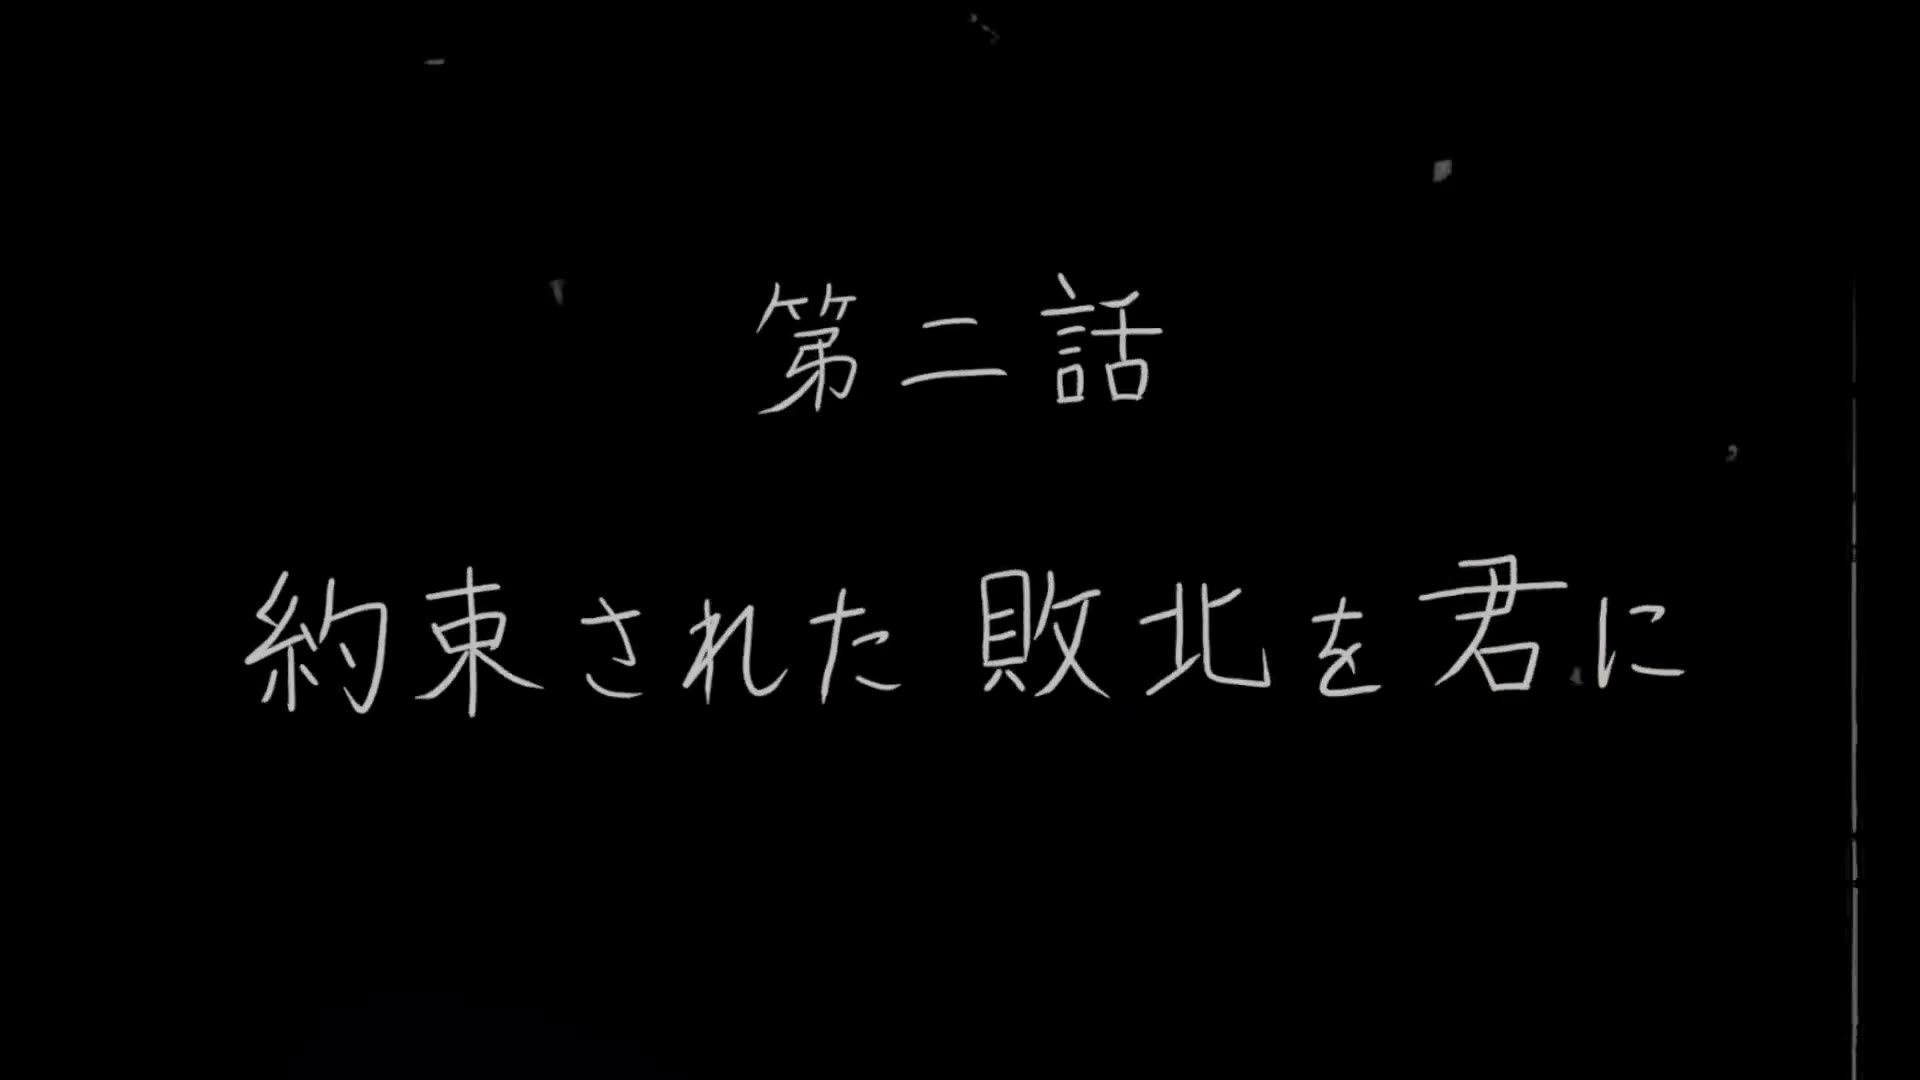 第二話
約束された敗北を君に